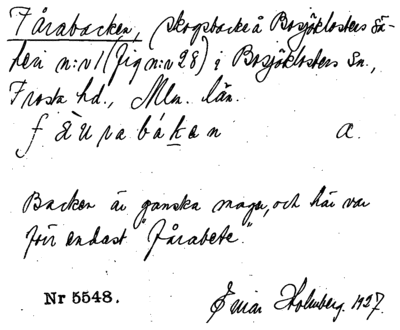 Fårabacken, skogsbacke å Bosjöklosters Sä-
teri n:r 1 (fig n:r 28) i Bosjöklosters Sn.,
Frosta hd., Mlm. län.
fåurabákan a.
Backen är ganska mager, och här var
förr endast "fårabete".
Nr 5548. Einar Holmberg. 1927.